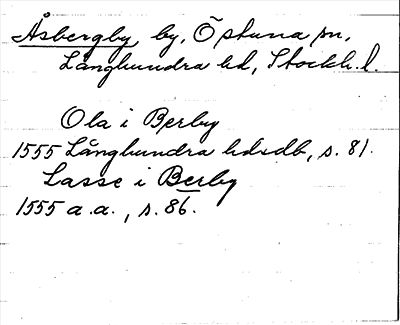 Åsbergby, by, Östuna sn,
Långhundra hd, Stockh. l.
Ola i Berby
1555 Långhundra hdsdb, s. 81.
Lasse i Berby
1555 a.a., s. 86.